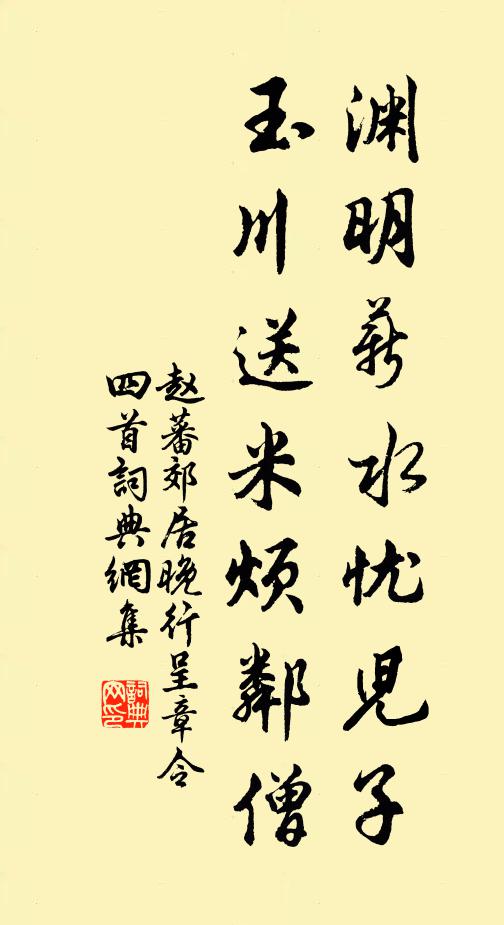 渊明薪水忧児子
玉川送米烦鄰僧
赵蕃郊居晚行呈章令
四首詞典網集
詞典
网印